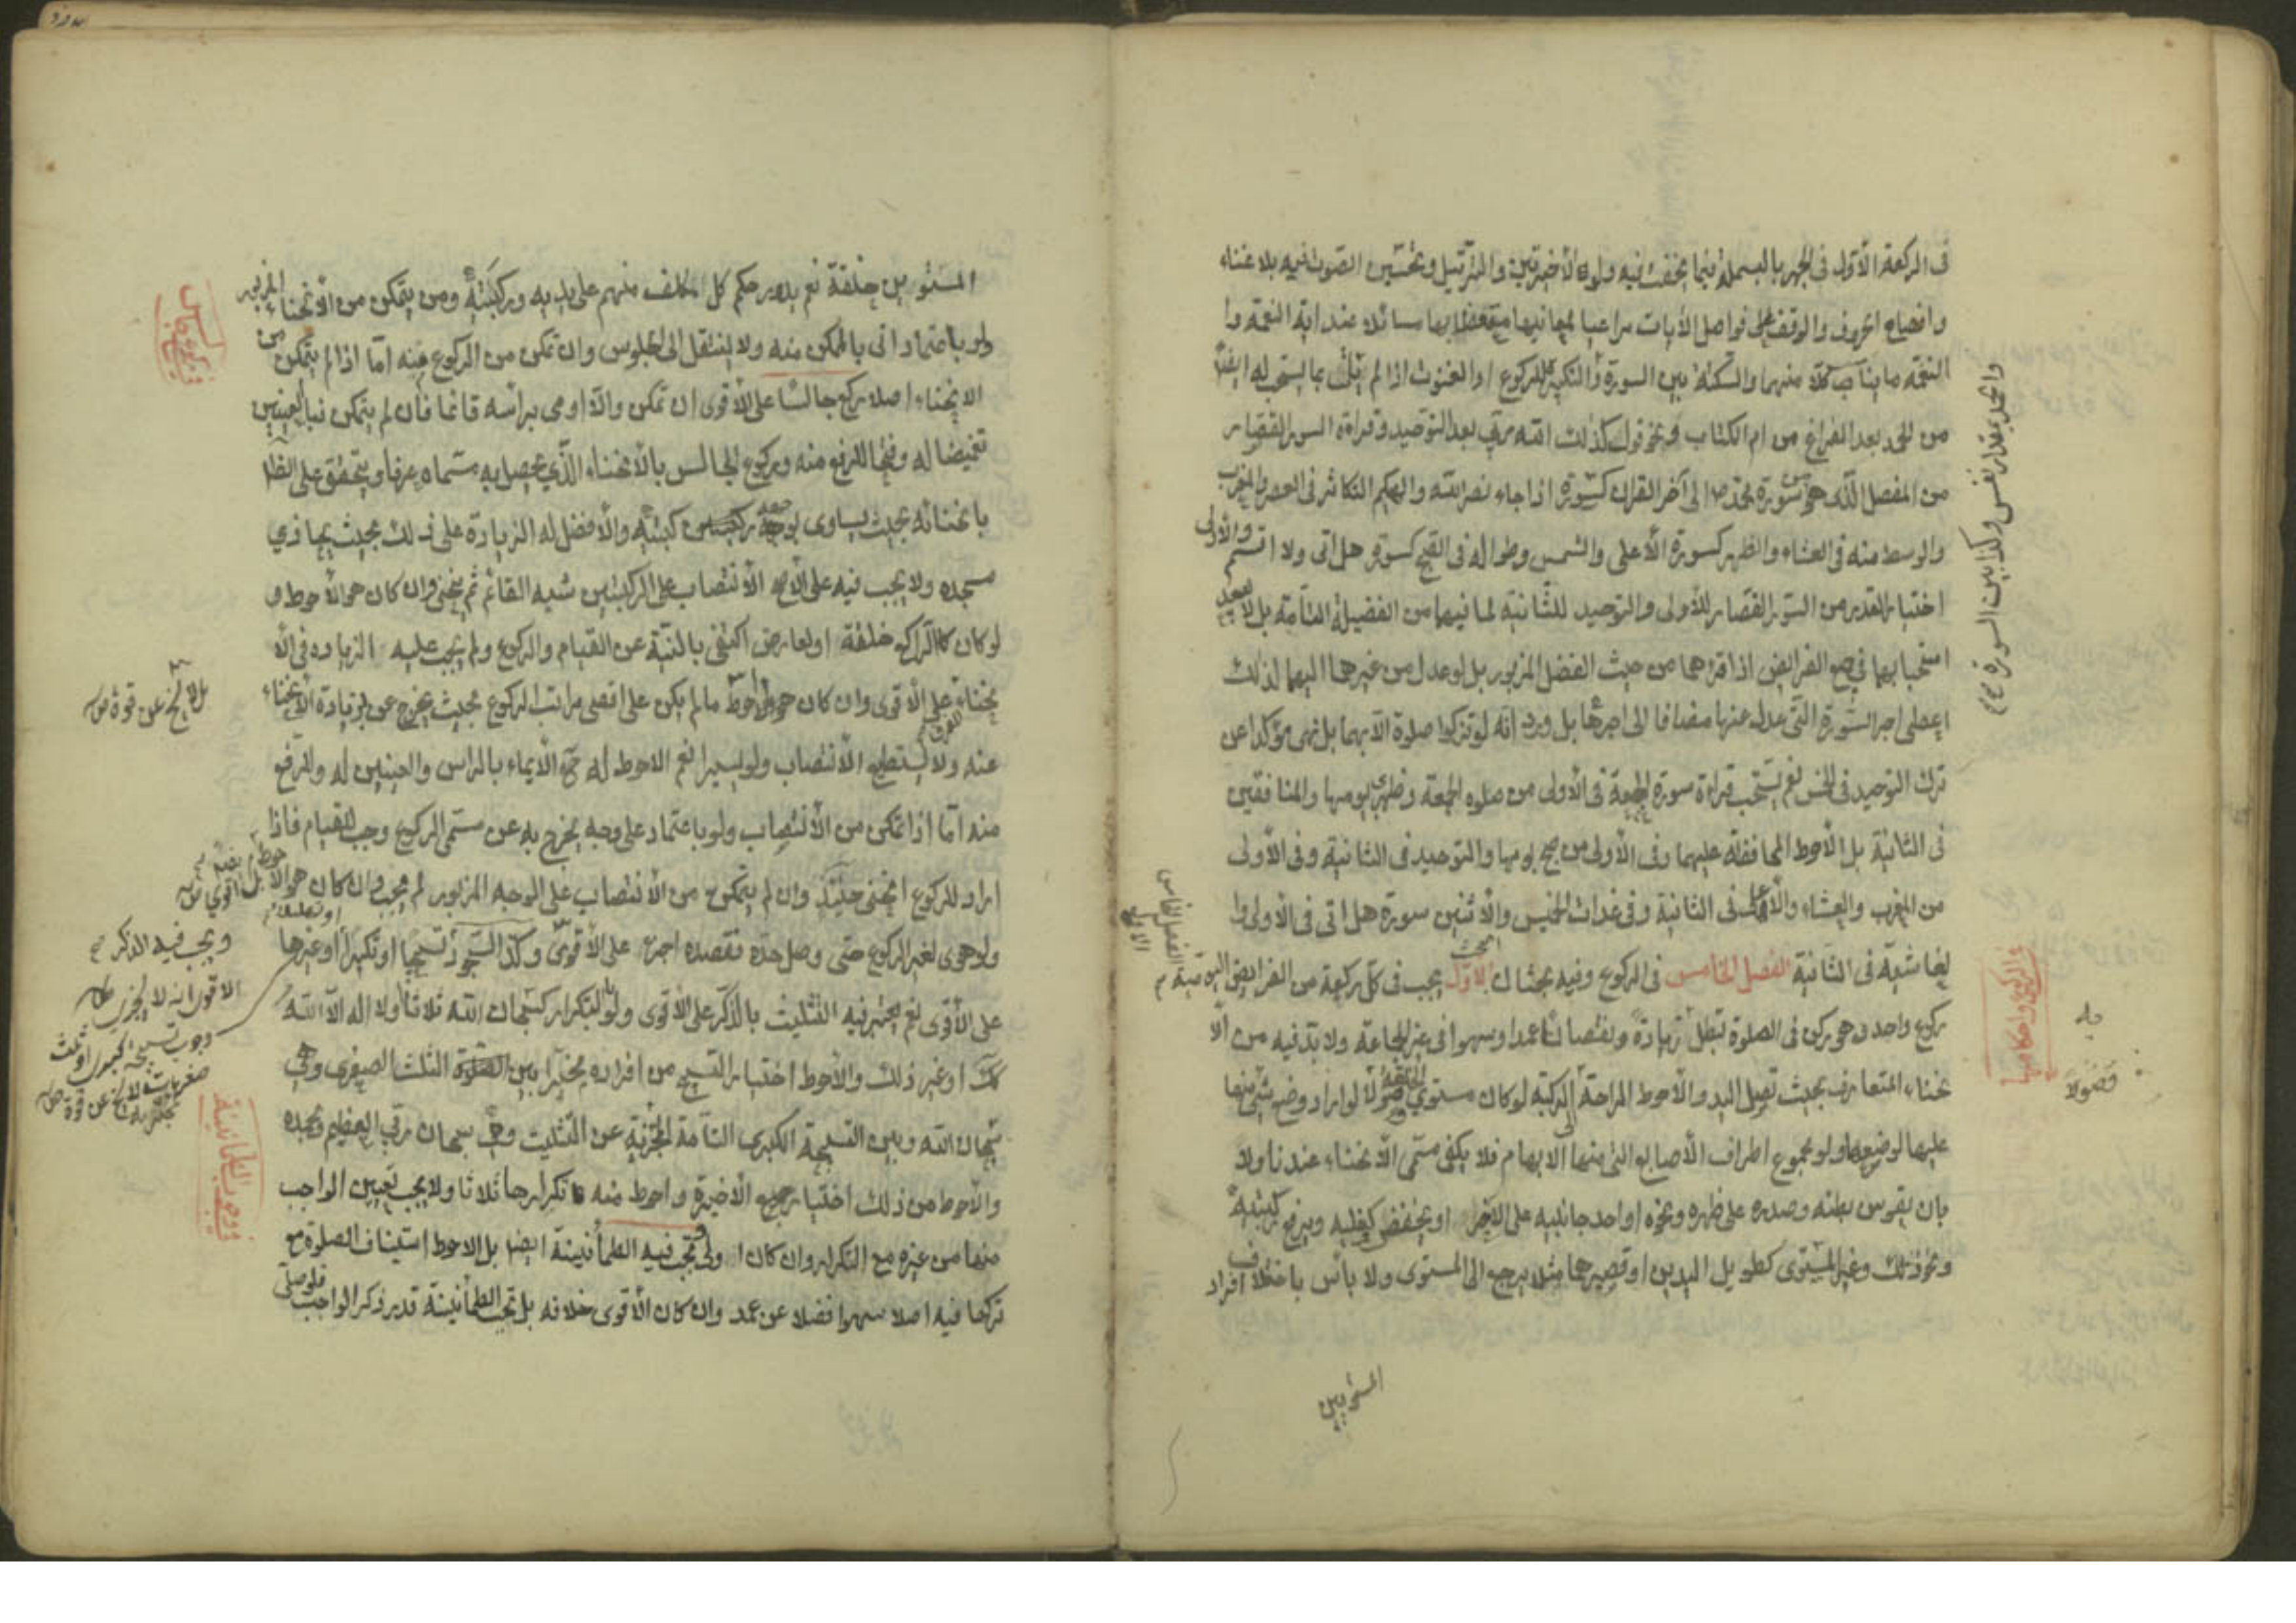 فى الركعة الأولى فى الجهر بالبسملة فيما يخفت فيه ولو الأخيرتين والترتيل وتحسين الصوت فيه بلا غناء
وافصاح الحروف والوقف على فواصل الأيات مراعيا لمعانيها متعظا بها سائلا عند اية النعمة وا
النقمة ما يناسب كلا منهما والسكتة بين السورة والتكبير للركوع او القنوت اذا لم
من الحمد بعد الفراغ من ام الكتاب ونحو قول كذلك الله ربي بعد التوحيد وقراءة السور القصار
من المفصل الذى هو من سورة محمد ص الى آخر القران كسورة اذا جاء نصر الله والهيكم التكاثر فى العصر والمغرب
والوسط منه فى العشاء والظهر كسورة الأعلى والشمس وطواله فى الصبح كسورة هل اتى ولا اقسم والأولى
اختيار القدر من السور القصار للأولى والتوحيد للثانية لما فيهما من الفضيلة التامة بل لا يبعد
استحبابهما فى جميع الفرايض اذا قرءهما من حيث الفضل المزبور بل لو عدل من غيرهما اليهما لذلك
اعطى اجر السورة التى عدل عنها مضافا الى اجرهما بل ورد انه لو تزكوا صلوة الا بهما بل نهى مؤكدا عن
ترك التوحيد فى الخمس نعم يستحب قراءة سورة الجمعة فى الأولى من صلوة الجمعة وظهر يومها والمنافقين
فى الثانية بل الأحوط المحافظة عليهما وفى الأولى من صبح يومها والتوحيد فى الثانية وفى الأولى
من المغرب والعشاء والأعلى فى الثانية وفى غدات الخميس والأثنين سورة هل اتى فى الاولى وا
لغاشية فى الثانية الفصل الخامس فى الركوع وفيه بحثان المبحث الأول يجب فى كل ركعة من الفرايض اليومية
ركوع واحد وهو ركن فى الصلوة تبطل زيادة ونقصانا عمدا وسهوا فى غير الجماعة ولا بد فيه من الا
نحناء المتعارف بحيث تصل اليد والأحوط الراحة الى الركبة لو كان مستوي الخلقة لو اراد وضع شيئ منها
عليها لوضعها ولو مجموع اطراف الأصابع التى منها الابهام فلا يكفى مسمى الأنحناء عندنا ولا
بان يقوس بطنه وصدره على ظهره ونحوه او احد جانبيه على الاخر او يخفض كفليه ويرفع ركبتيه
ونحو ذلك وغير المستوى كطويل اليدين او قصيرهما مثلا يرجع الى المستوى ولا بأس باختلاف افراد
المستويين
والحمد بمقدار نفس وكذا بين السورة
الفصل الخامس
الاول
فى الركوع واحكامها
المستويين خلقة نعم يدور حكم كل مكلف منهم على يديه وركبتيه ومن يتمكن من الأنحناء المزبور
ولو باعتماد اتى بالممكن منه ولا ينتقل الى الجلوس وان تمكن من الركوع منه اما اذا لم يتمكن من
الانحناء اصلا ركع جالسا على الأقوى ان تمكن والا اومى برأسه قائما فان لم يتمكن فبالعينين
تغميضا له وفتحا للرفع منه وركوع الجالس بالأنحناء الذي يحصل به مسماه عرفا ويتحقق على الظا
بانحنائه بحيث يساوى وجهه ركبتيه والأفضل له الزيادة على ذلك بحيث يحاذي
مسجده ولا يجب فيه على الأصح الأنتصاب على الركبتين شبه القائم ثم ينحنى وان كان هو الأحوط و
لو كان كالراكع خلقة او لعارض اكتفى بالنية عن القيام والركوع ولم يجب عليه الزيادة فى الا
نحناء للفرق على الأقوى وان كان هو الأحوط ما لم يكن على اقصى مراتب الركوع بحيث يخرج عن بزيادة الأنحناء
عنه ولا يستطيع الأنتصاب ولو يسيرا نعم الاحوط له ح الأيماء بالراس والعينين له وللرفع
منه اما اذا تمكن من الأنتصاب ولو باعتماد على وجه يخرج به عن مسمى الركوع وجب للقيام فاذا
اراد للركوع انحنى حينئذ وان لم يتمكن من الأنتصاب على الوجه المزبور لم يجب وان كان هو الأحوط بل
ولو هوى لغير الركوع حتى وصل حده فقصده اجزء على الأقوى وكذا السجود تسبيحا او تكبيرا او غيرها
على الأقوى نعم يعتبر فيه التثليث بالذكر على الأقوى ولو بالتكرار كسبحان الله ثلاثا ولا اله الا الله
كك او غير ذلك والأحوط اختيار التسبيح من افراده مخيرا بين الثلث الصغرى وهي
سبحان الله وبين التسبيحة الكبرى التامة المجزية عن التثليث وهي سبحان ربي العظيم وبحمده
والأحوط من ذلك اختيار جميع الأخيرة واحوط منه تكرارها ثلاثا ولا يجب تعيين الواجب
منها من غيره مع التكرار وان كان اولى وتجب فيه الطمأنينة ايضا بل الاحوط استيناف الصلوة مع
تركها فيه اصلا سهوا فضلا عن عمد وان كان الأقوى خلافه بل تجب الطمأنينة قدر ذكر الواجب فلو صلى
بل لا يخ عن قوة
ويجب فيه الذكر